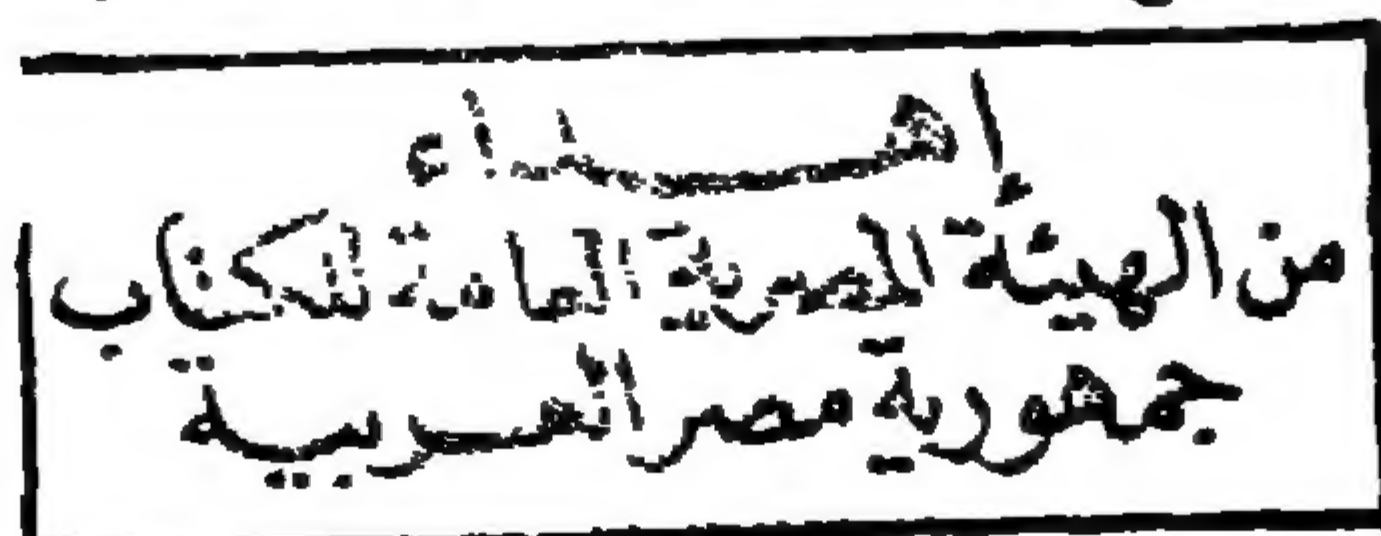 إهداء
من الهيئة المصرية العامة للكتاب
جمهورية مصر العربية